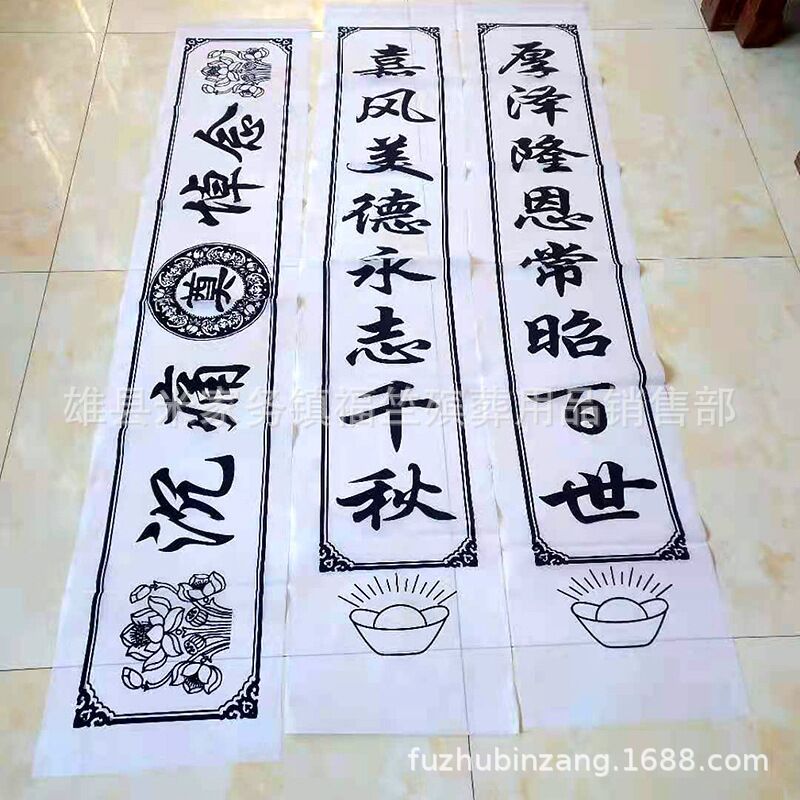 沉痛奠悼念
嘉风美德永志千秋
厚泽隆恩常昭百世
雄县米家务镇福竺殡葬用品销售部
fuzhubinzang.1688.com